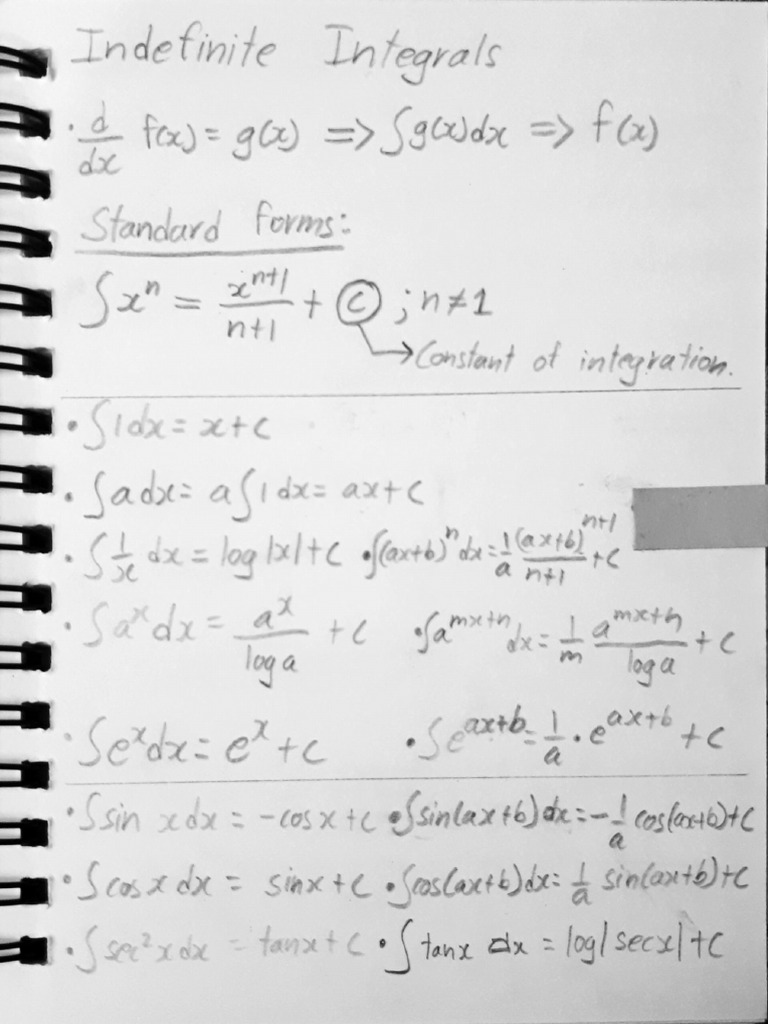 Indefinite Integrals
· d/dx f(x) = g(x) => ∫g(x)dx => f(x)
Standard forms:
∫xⁿ = xⁿ⁺¹/n+1 + C ; n≠1
→ Constant of integration.
• ∫1dx = x+c
• ∫a dx = a∫1 dx = ax+c
• ∫1/x dx = log|x|+c •∫(ax+b)ⁿ dx = 1/a (ax+b)ⁿ⁺¹/n+1 + c
• ∫aˣ dx = aˣ/log a + c •∫a^(mx+n) dx = 1/m a^(mx+n)/log a + c
• ∫eˣdx = eˣ + c •∫e^(ax+b) = 1/a · e^(ax+b) + c
• ∫sin x dx = -cos x + c •∫sin(ax+b) dx = -1/a cos(ax+b)+c
• ∫cos x dx = sin x + c •∫cos(ax+b)dx = 1/a sin(ax+b)+c
• ∫sec²x dx = tanx + c •∫tanx dx = log|secx|+c